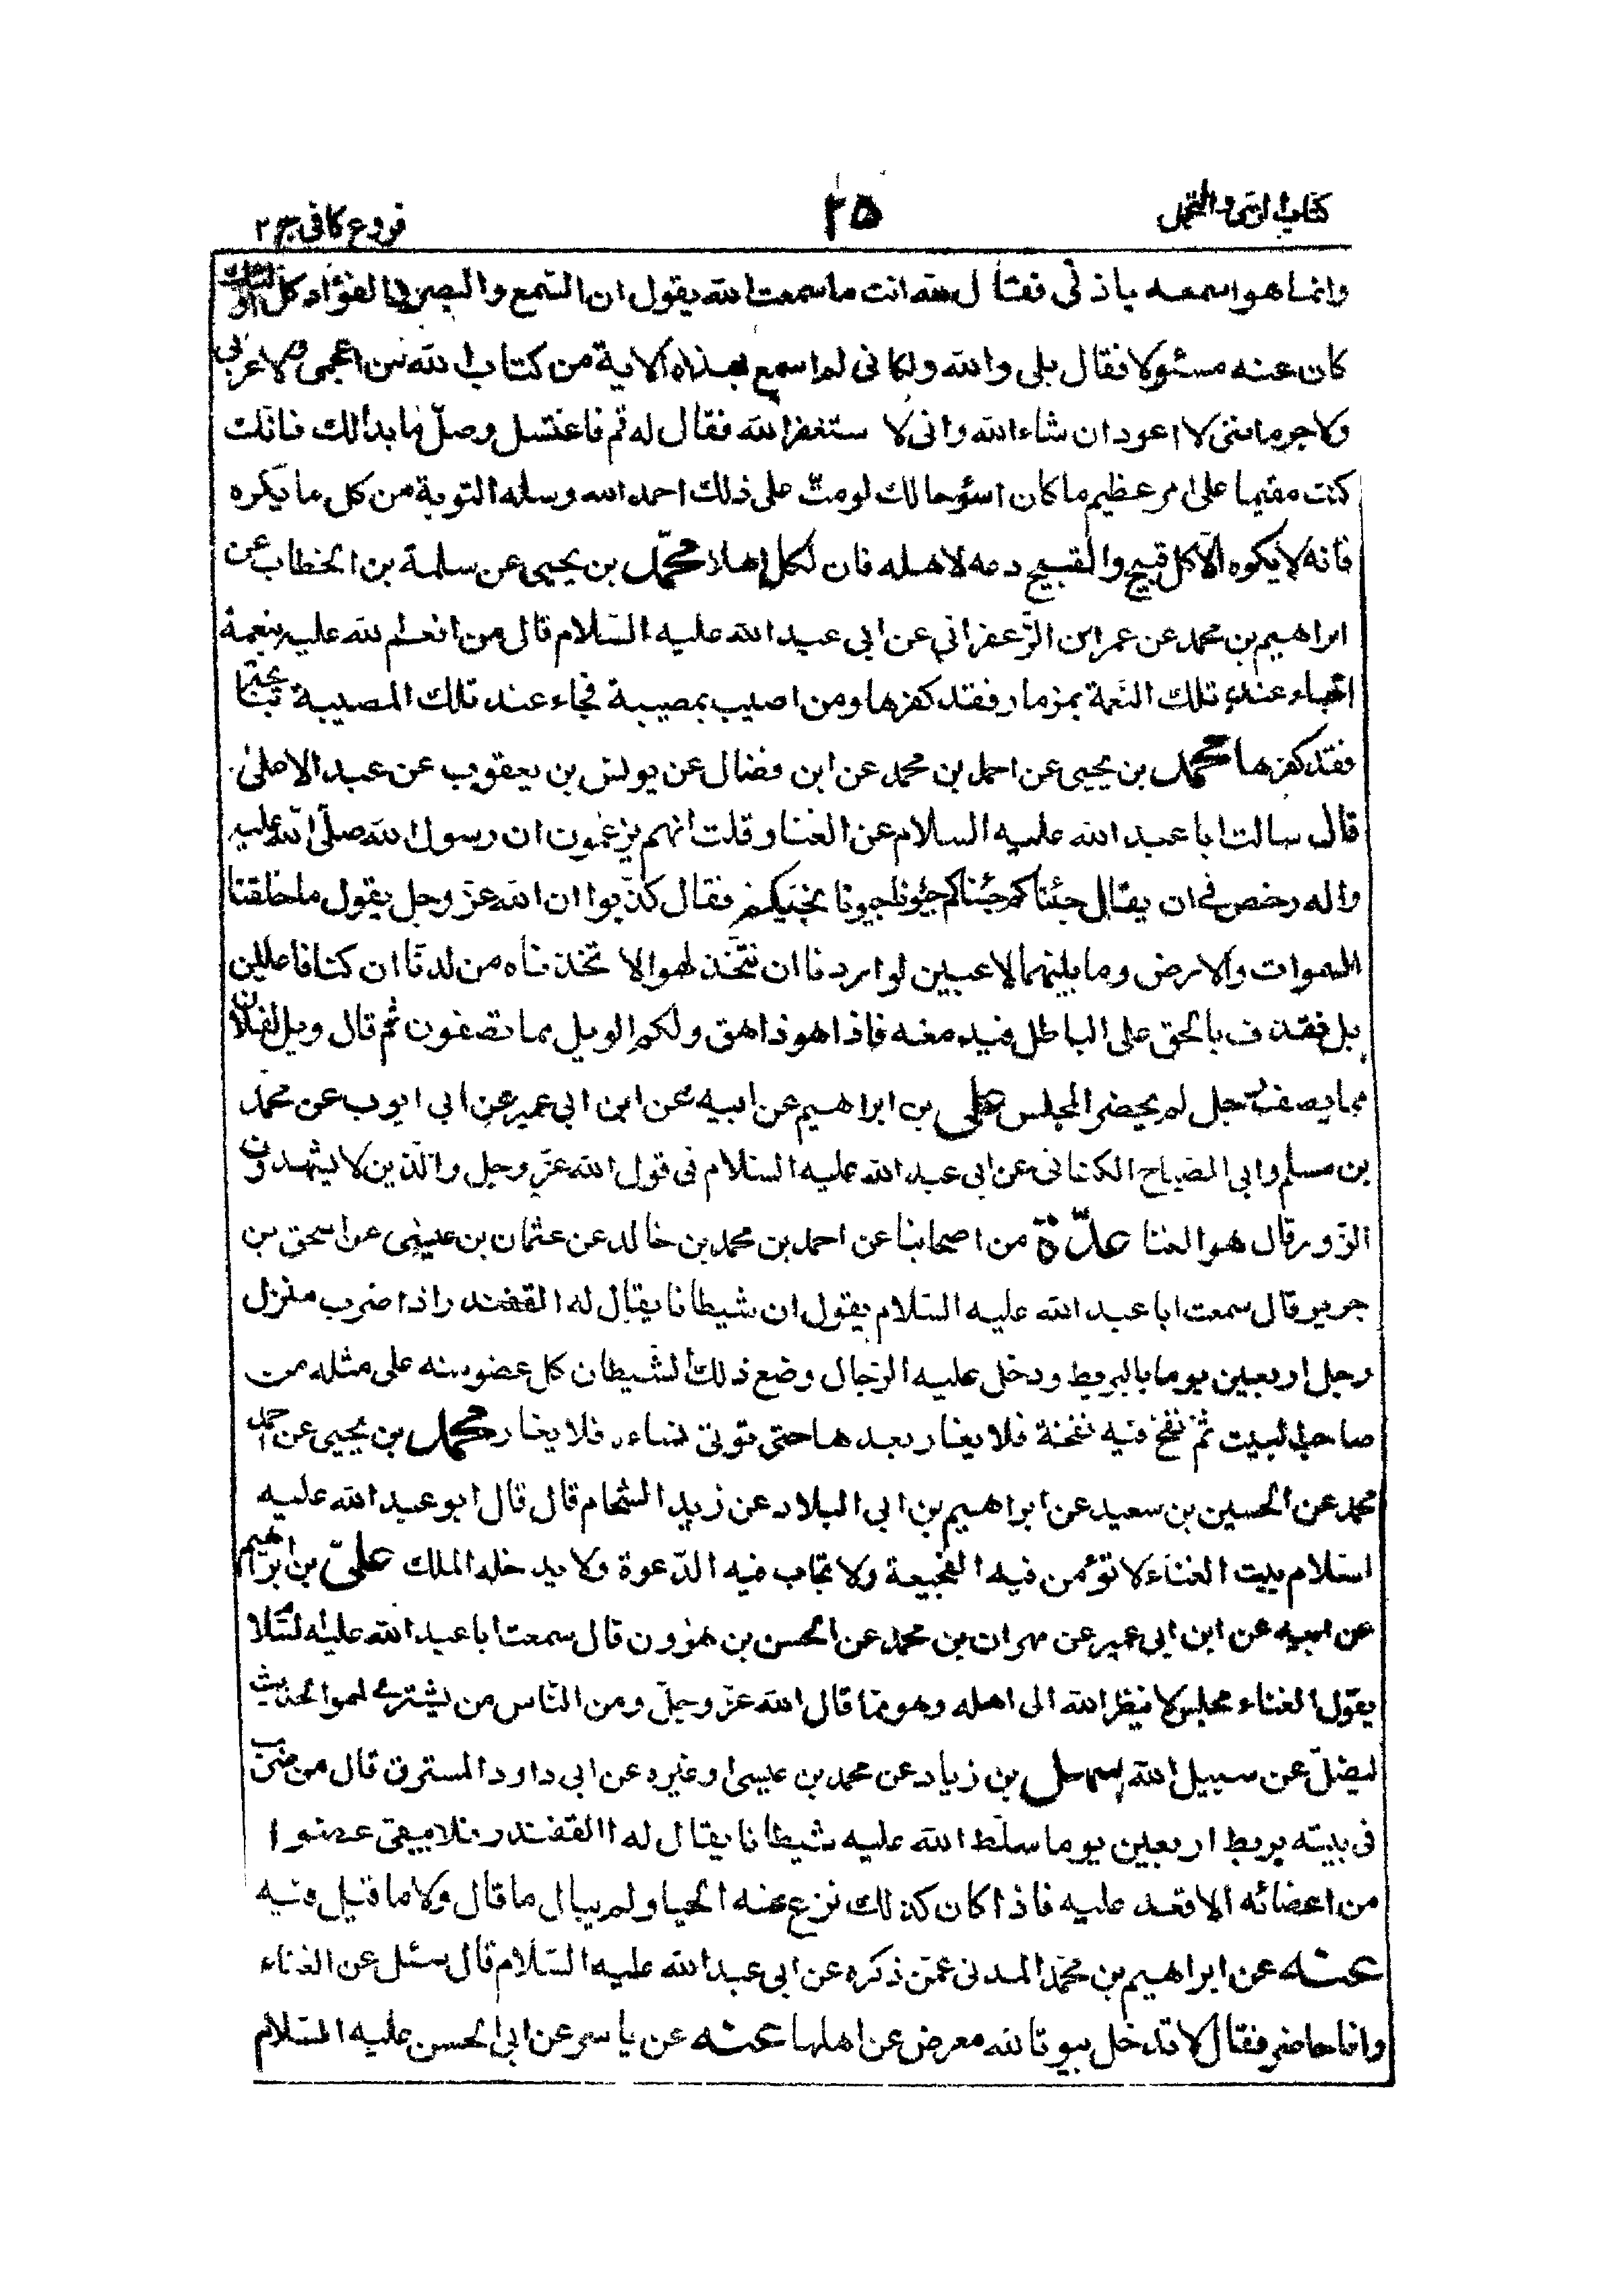 كتاب الزى والتجمل
٢٥
فروع كافى ج ٢
وانما هو اسمعه باذنى فقال لله انت ما سمعت الله يقول ان السمع والبصر والفؤاد كل اولئك
كان عنه مسئولا فقال بلى والله ولكانى لم اسمع بهذه الاية من كتاب الله من اعجمى ولا عربى
ولا جرم اننى لا اعود ان شاء الله وانى لا ستغفر الله فقال له قم فاغتسل وصلّ ما بدا لك فانك
كنت مقيما على امر عظيم ما كان اسؤ حالك لو متّ على ذلك احمد الله وسله التوبة من كل ما يكره
فانه لا يكره الّا كل قبيح والقبيح دعه لاهله فان لكل اهلا محمّد بن يحيى عن سلمة بن الخطاب عن
ابراهيم بن محمد عن عمران الزّعفرانى عن ابى عبد الله عليه السّلام قال من انعم الله عليه بنعمة
فجاء عند تلك النّعمة بمزمار فقد كفرها ومن اصيب بمصيبة فجاء عند تلك المصيبة بنائحة
فقد كفرها محمّد بن يحيى عن احمد بن محمد عن ابن فضال عن يونس بن يعقوب عن عبد الاعلى
قال سالت ابا عبد الله عليه السلام عن الغنا وقلت انهم يزعمون ان رسول الله صلّى الله عليه
واله رخص فى ان يقال جئناكم جئناكم حيّونا حيونا نحيّكم فقال كذّبوا ان الله عزّ وجل يقول ما خلقنا
السموات والارض وما بينهما لاعبين لو اردنا ان نتّخذ لهوا لا تخذناه من لدنّا ان كنا فاعلين
بل نقذف بالحق على الباطل فيدمغه فاذا هو زاهق ولكم الويل مما تصفون ثم قال ويل لفلان
مما يصف رجل لم يحضر المجلس على بن ابراهيم عن ابيه عن ابن ابى عمير عن ابى ايوب عن محمّد
بن مسلم وابى الصباح الكنانى عن ابى عبد الله عليه السّلام فى قول الله عزّ وجل والّذين لا يشهدون
الزّور قال هو الغنا عدّة من اصحابنا عن احمد بن محمد بن خالد عن عثمان بن عيسى عن اسحق بن
جرير قال سمعت ابا عبد الله عليه السّلام يقول ان شيطانا يقال له القفندر اذا ضرب منزل
رجل اربعين يوما بالبربط ودخل عليه الرّجال وضع ذلك الشّيطان كل عضو منه على مثله من
صاحب البيت ثمّ نفخ فيه نفخة فلا يغار بعدها حتى توتى نساءه فلا يغار محمّد بن يحيى عن احمد
محمد عن الحسين بن سعيد عن ابراهيم بن ابى البلاد عن زيد الشّحام قال قال ابو عبد الله عليه
السّلام بيت الغناء لا تؤمن فيه الفجيعة ولا تجاب فيه الدّعوة ولا يدخله الملك علىّ بن ابراهيم
عن ابيه عن ابن ابى عمير عن مهران بن محمد عن الحسن بن هرون قال سمعت ابا عبد الله عليه السّلام
يقول الغناء مجلس لا ينظر الله الى اهله وهو ممّا قال الله عزّ وجلّ ومن النّاس من يشترى لهو الحديث
ليضلّ عن سبيل الله سهل بن زياد عن محمد بن عيسى او غيره عن ابى داود المسترق قال من ضرب
فى بيته بربط اربعين يوما سلّط الله عليه شيطانا يقال له القفندر فلا يبقى عضوا
من اعضائه الا قعد عليه فاذا كان كذلك نزع عنه الحيا ولم يبال ما قال ولا ما قيل فيه
عنه عن ابراهيم بن محمّد المدنى عمّن ذكره عن ابى عبد الله عليه السّلام قال سئل عن الغناء
وانا حاضر فقال لا تدخل بيوتا الله معرض عن اهلها عنه عن ياسر عن ابى الحسن عليه السّلام